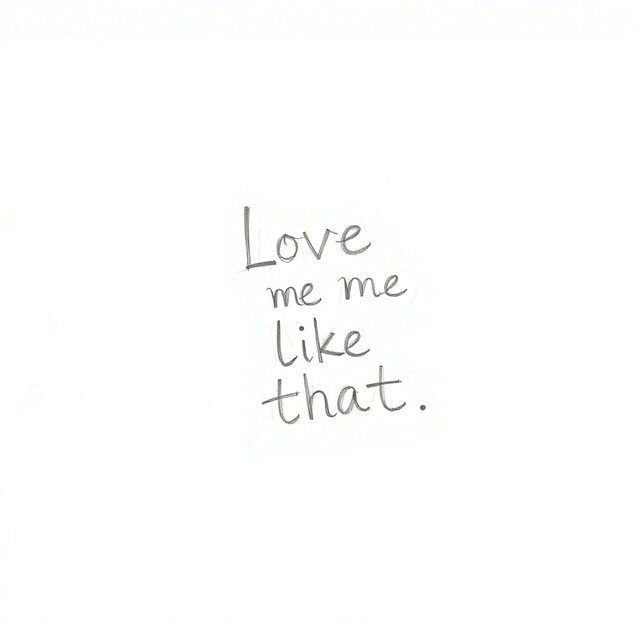 Love
me me
like
that.